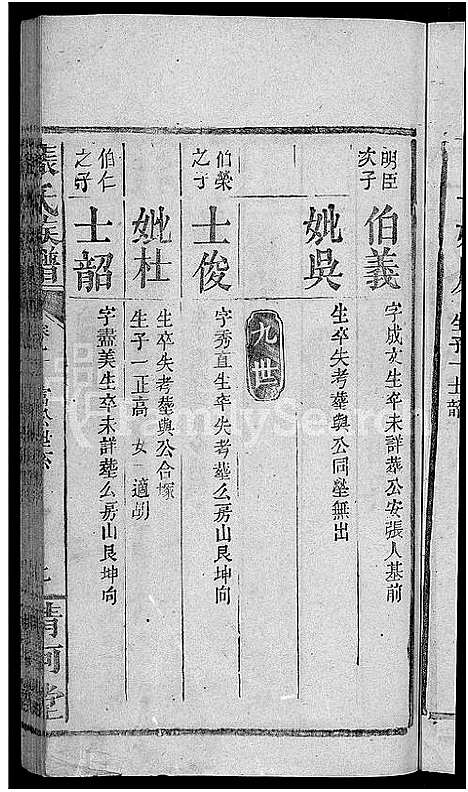 生子一士韶
明臣
次子
伯義
字成文生卒未詳葬公安張人基前
妣吳
生卒失考葬與公同塋無出
九世
伯榮
之子
士俊
字秀直生卒失考葬么房山艮坤向
妣杜
生卒失考葬與公合塚
生子一正高 女一適胡
伯仁
之子
士韶
字盡美生卒未詳葬么房山艮坤向
張氏族譜
清河堂